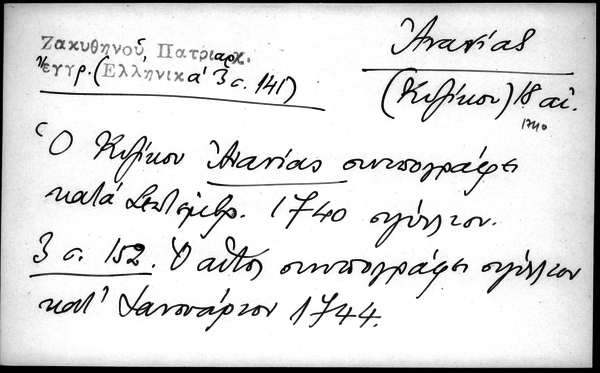 Ζακυθηνοῦ, Πατριαρχ.
ἔγγρ. (Ἑλληνικά 3 σ. 141)
Ἀνανίας
(Κυζίκου) 18 αἰ.
1740
Ὁ Κυζίκου Ἀνανίας συνυπογράφει
κατά Σεπτέμβρ. 1740 σιγίλλιον.
3 σ. 152. Ὁ αὐτός συνυπογράφει σιγίλλιον
κατ' Ἰανουάριον 1744.